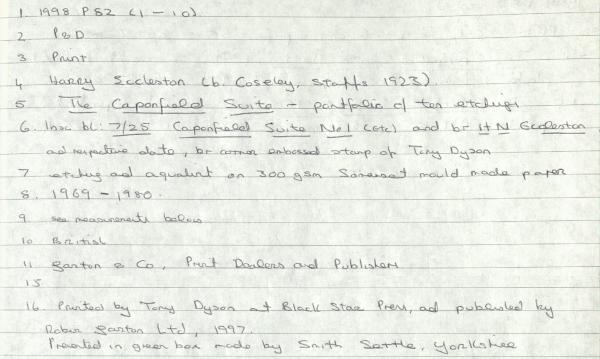 1. 1998 P 82 (1 - 10)
2 P&D
3 Print
4 Harry Eccleston (b. Coseley, Staffs 1923)
5 The Caponfield Suite - portfolio of ten etchings
6. Insc bl: 7/25 Caponfield Suite No1 (etc) and br H N Eccleston
ad respective date, br corner embossed stamp of Tony Dyson
7 etching ad aquatint on 300 gsm Somerset mould made paper
8. 1969 - 1980.
9. see measurements below
10 British
11 Garton & Co, Print Dealers and Publishers
15
16. Printed by Tony Dyson at Black Star Press, ad published by
Robin Garton Ltd, 1997.
Presented in green box made by Smith Settle, Yorkshire